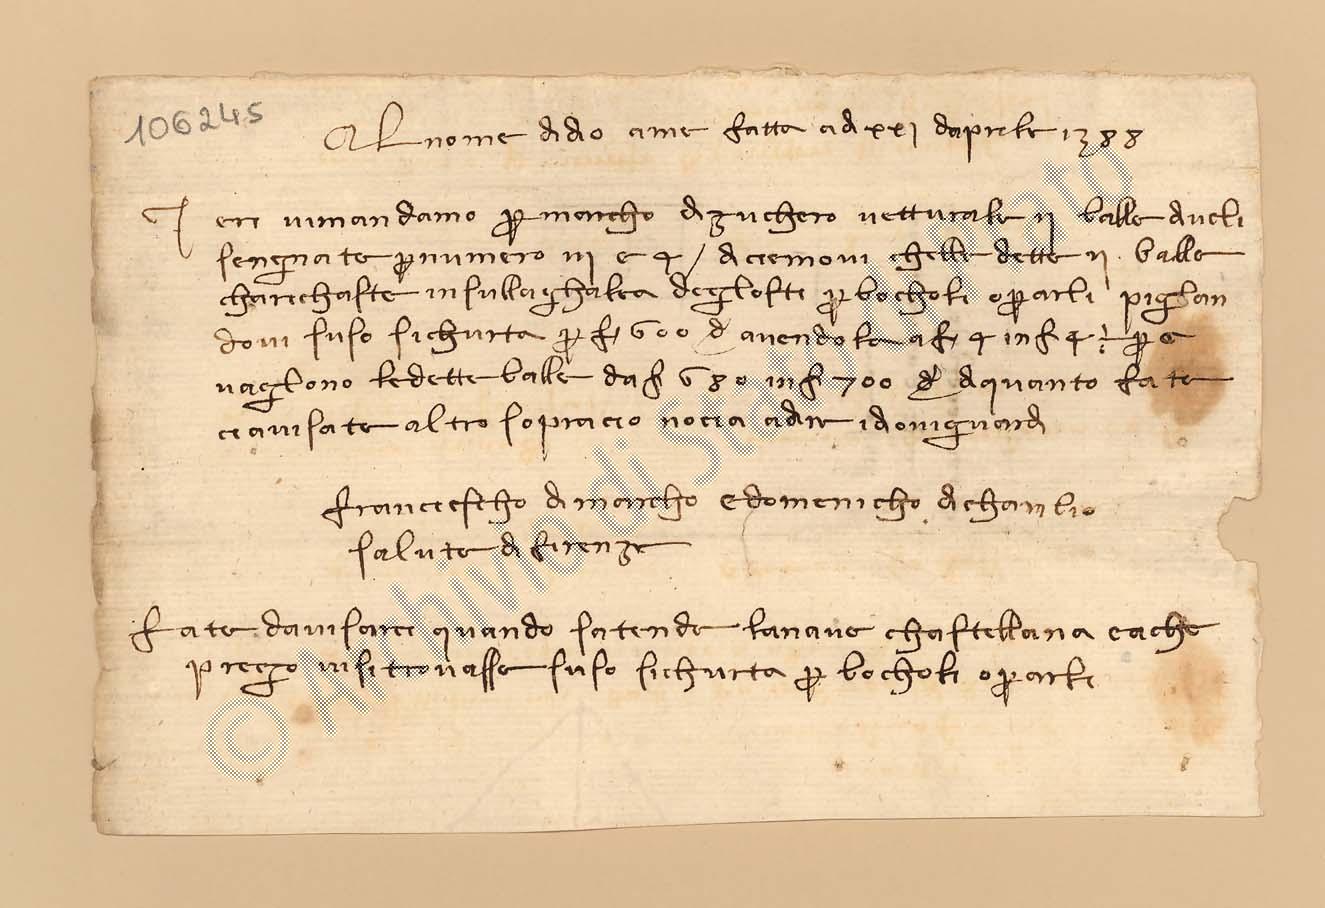 106245
Al nome didio ame fatta adi xxi daprile 1388
Ieri vi mandamo per marcho di zuchero vetturale ii balle di veli
sengnate per numero iii e 4 / diciemovi chelle dette ii balle
charichaste in sulla ghalea deglosti per bocholi o parli piglan
dovi suso sichurta per f 600 d avendola a f 4 in f 4 per c
vaglono le dette balle da f 680 in f 700 d di quanto fate
ci avisate altro sopra cio no cia a dire idio vi guardi
Franciescho di marcho e domenicho di chanbio
salute di Firenze
Fate davisarci quando satende la nave chastellana e a che
pregio vi si trovasse suso sichurta per bocholi o parli
© Archivio di Stato di Prato